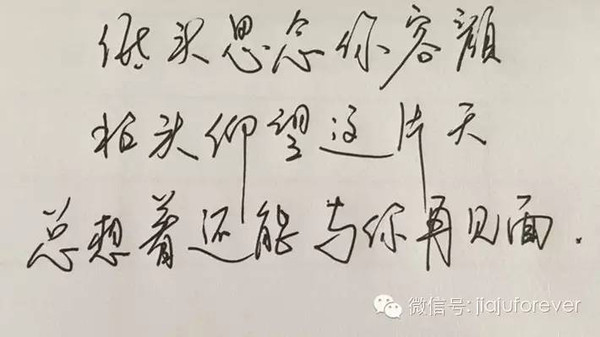 低头思念你容颜
抬头仰望这片天
总想着还能与你再见面.
微信号: jiajuforever